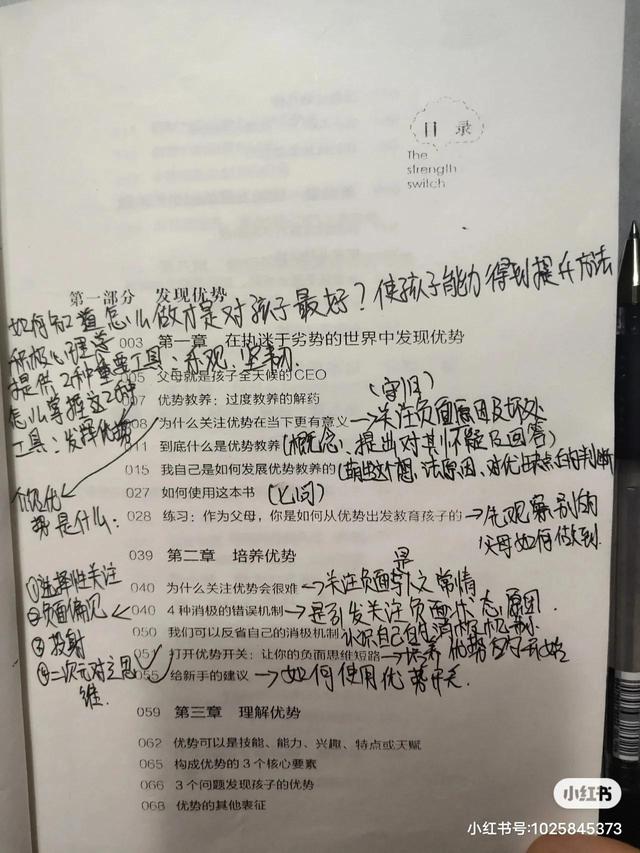 目 录
The
strength
switch
第一部分 发现优势
如何知道怎么做才是对孩子最好？使孩子能力得到提升方法
003 第一章 在执迷于劣势的世界中发现优势
积极心理学
提供2种重要工具：乐观、坚韧.
05 父母就是孩子全天候的CEO
怎么掌握这2种
07 优势教养：过度教养的解药
工具：发挥优势
08 为什么关注优势在当下更有意义→关注负面原因及坏处
11 到底什么是优势教养(概念、提出对其怀疑及回答)
015 我自己是如何发展优势教养的
027 如何使用这本书
势是什么：
028 练习：作为父母，你是如何从优势出发教育孩子的→先观察别的
父母如何做到.
039 第二章 培养优势
①选择性关注
040 为什么关注优势会很难→关注负面是人之常情
②负面偏见
040 4种消极的错误机制→是引发关注负面状态原因.
③投射
050 我们可以反省自己的消极机制
认识自己的消极机制.
④二次元对立思
维.
051 打开优势开关：让你的负面思维短路
055 给新手的建议→如何使用优势开关.
059 第三章 理解优势
062 优势可以是技能、能力、兴趣、特点或天赋
065 构成优势的3个核心要素
066 3个问题发现孩子的优势
068 优势的其他表征
小红书
小红书号:1025845373